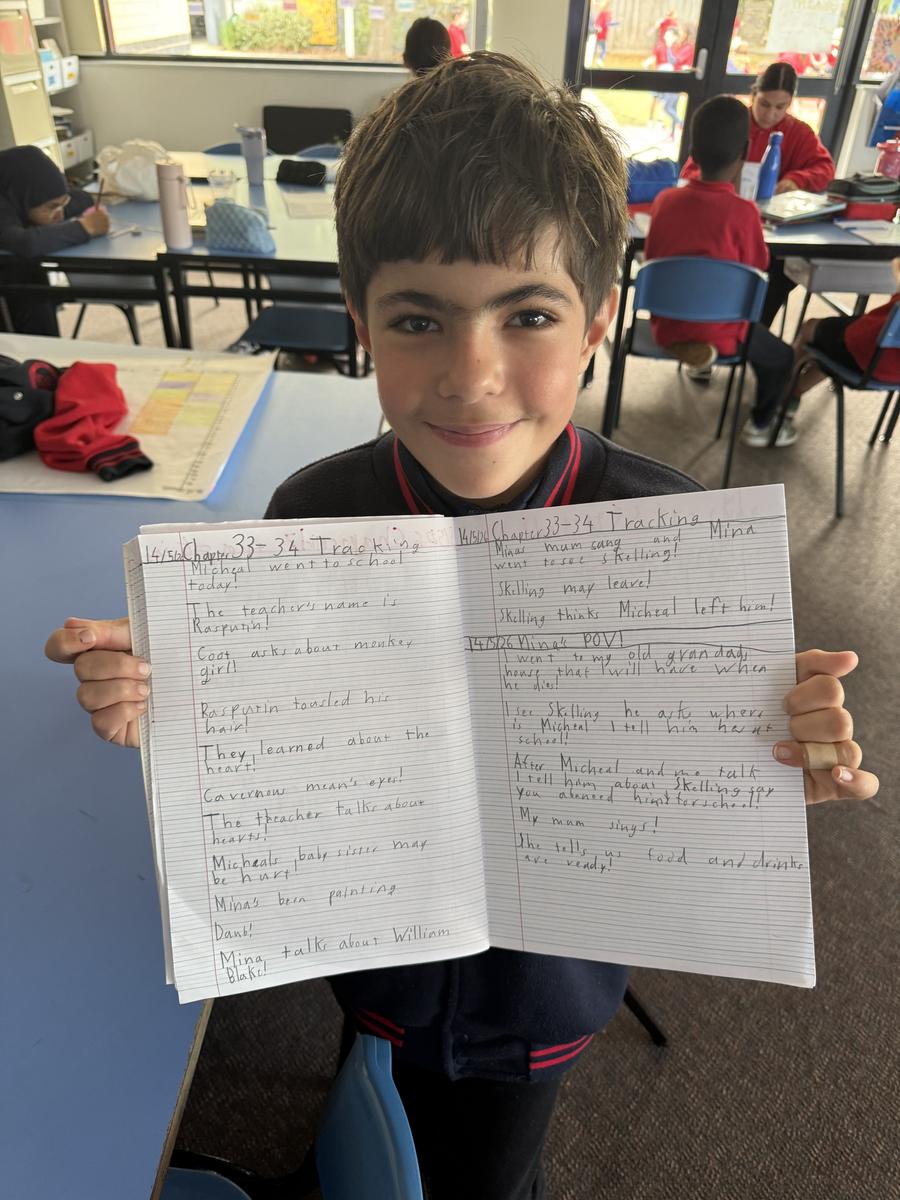 14/5/26 Chapter 33-34 Tracking
Micheal went to school
today!
The teacher's name is
Raspurin!
Coot asks about monkey
girl!
Raspurin tousled his
hair!
They learned about the
heart!
Cavernous mean's eyes!
The threacher talks about
hearts!
Micheals baby sister may
be hurt!
Mina's been painting
Danb!
Mina, talks about William
Blake!
14/5/26 Chapter 33-34 Tracking
Minas mum sang and Mina
went to see skelling!
Skelling may leave!
Skelling thinks Micheal left him!
14/5/26 Mina's POV!
I went to my old grandads
house that I will have when
he dies!
I see Skelling he ask where
is Micheal I tell him hes at
school!
After Micheal and me talk
I tell him about Skelling say
you abanced him for school!
My mum sings!
She tells us food and drinks
are ready!